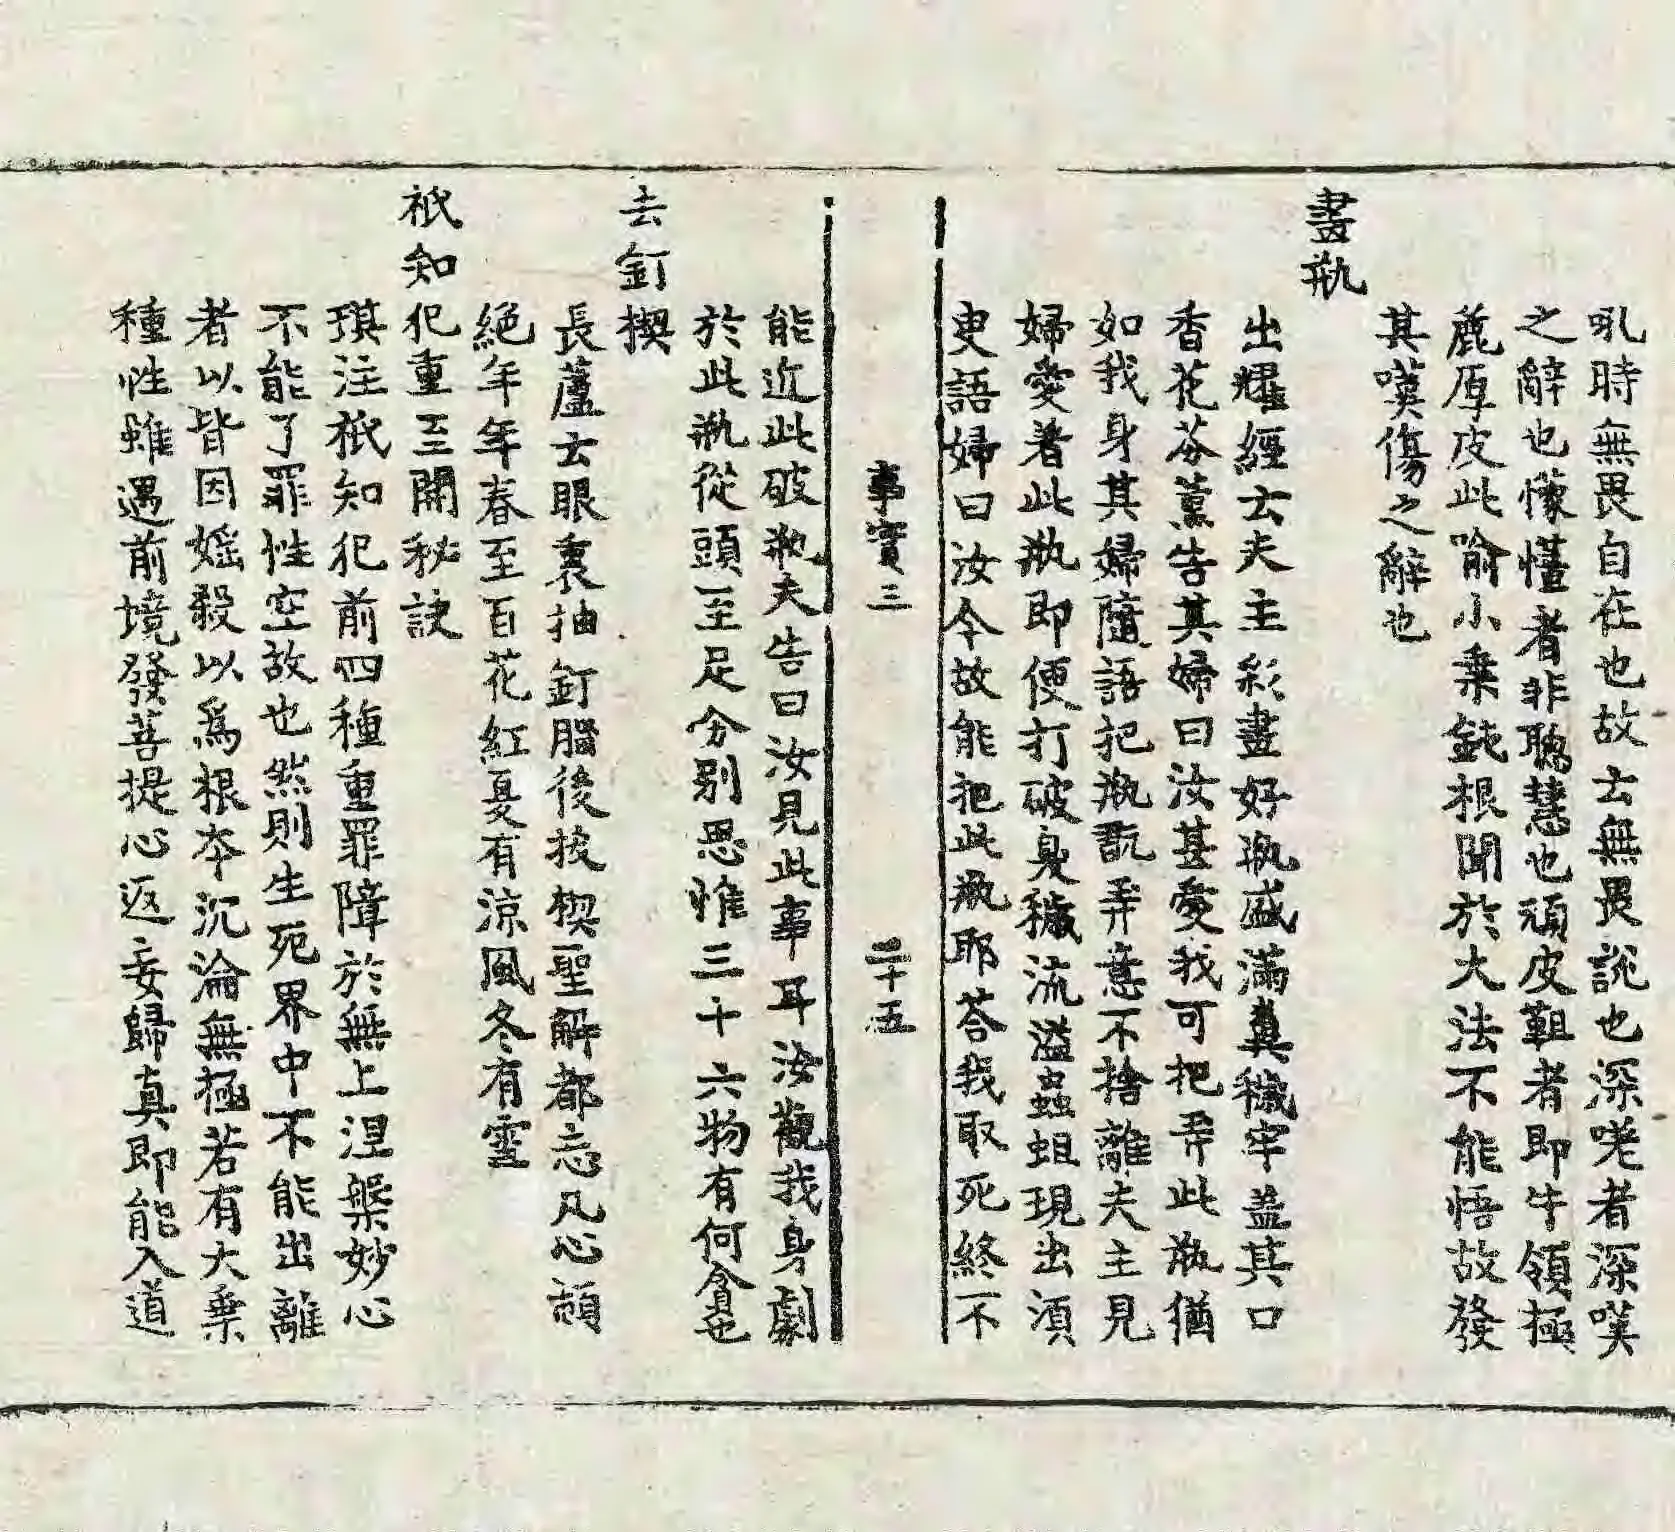 吼時無畏自在也故云無畏說也深嗟者深嘆
之辭也懞懂者非聰慧也頑皮靼者即牛領極
麁厚皮此喻小乗鈍根聞於大法不能悟故發
其嘆傷之辭也
畫瓶
出耀經云夫主彩畫好瓶盛滿糞穢牢蓋其口
香花芬薰告其婦曰汝甚愛我可把弄此瓶猶
如我身其婦隨語把瓶翫弄意不捨離夫主見
婦愛著此瓶即便打破臭穢流溢蟲蛆現出須
臾語婦曰汝今故能祀此瓶耶荅我取死終不
事實三 二十五
能近此破瓶夫告曰汝見此事耳汝觀我身劇
於此瓶從頭至足分別思惟三十六物有何貪也
去釘楔
長蘆云眼裏抽釘腦後拔楔聖解都忘凡心頓
絕年年春至百花紅夏有涼風冬有雪
祇知犯重至開秘訣
琪注祇知犯前四種重罪障於無上涅槃妙心
不能了罪性空故也然則生死界中不能出離
者以皆因婬殺以爲根夲沉淪無極若有大乗
種性雖遇前境發菩提心返妄歸真即能入道